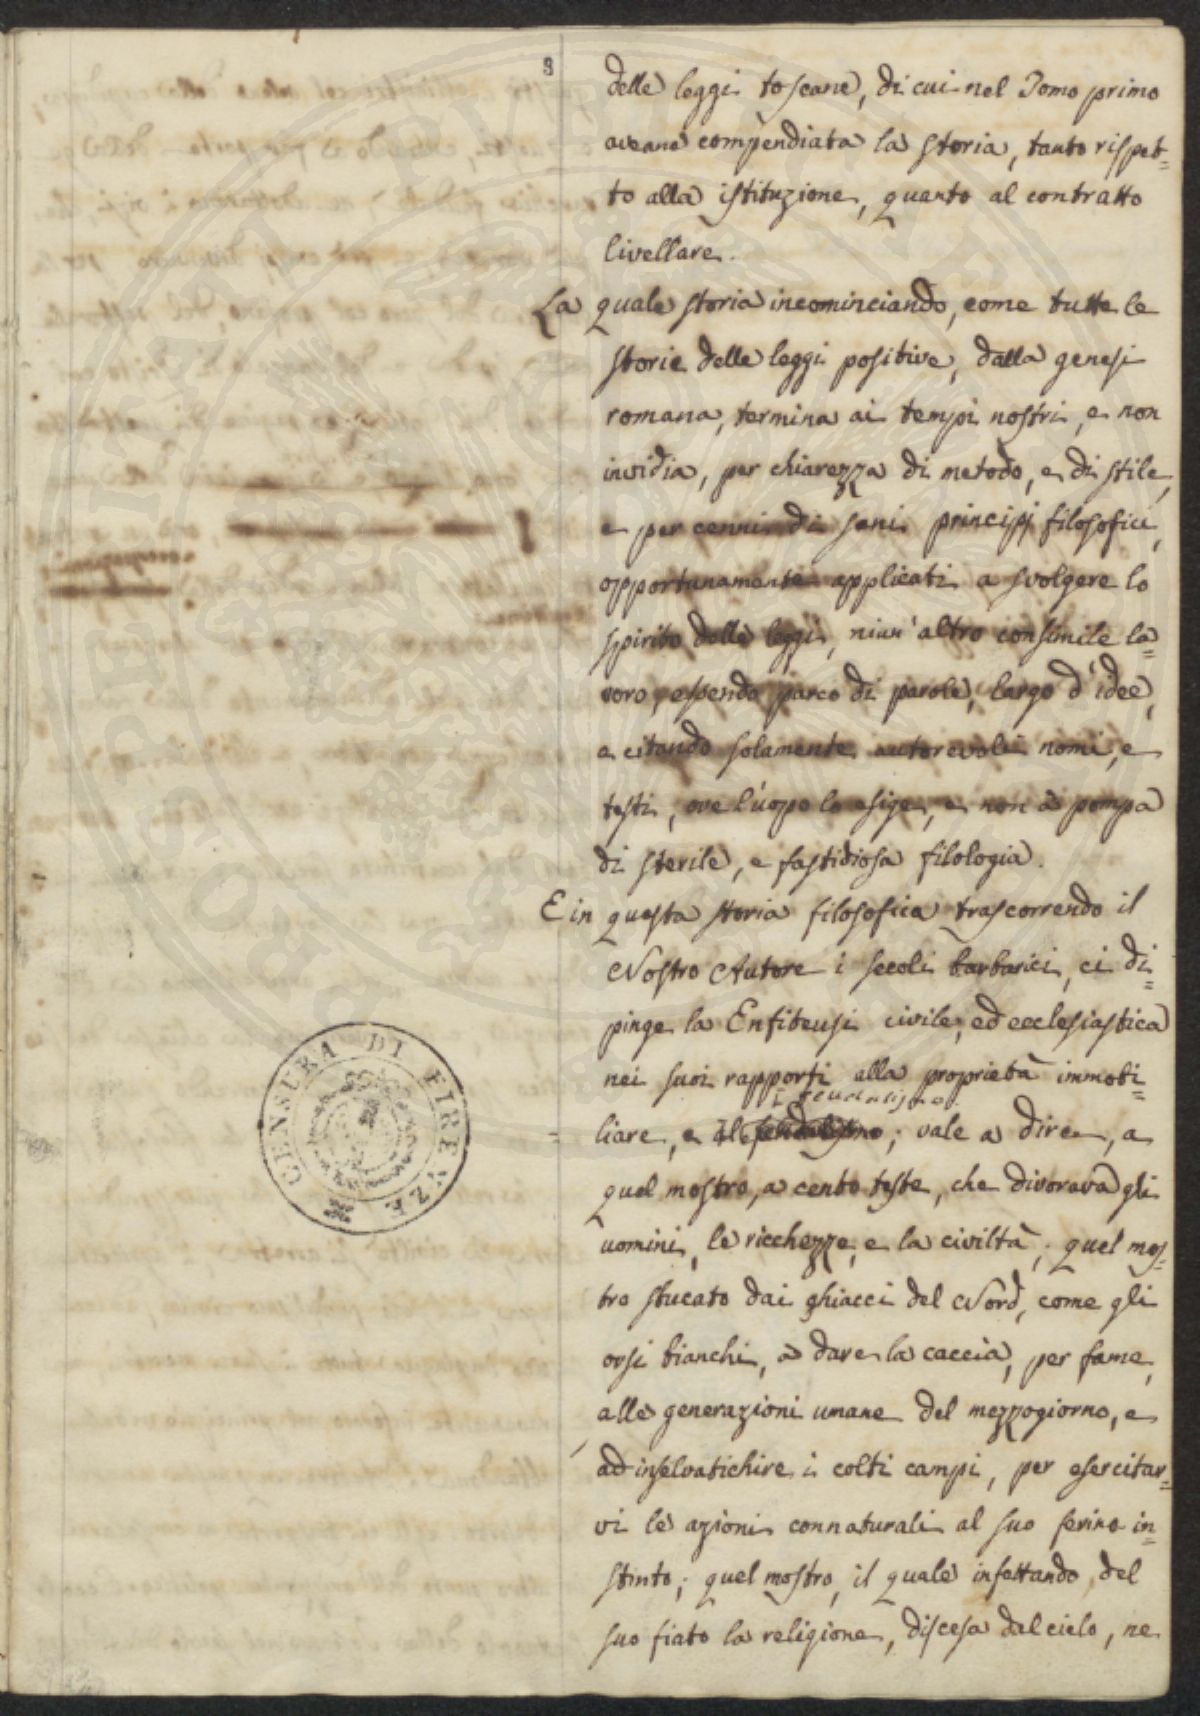 8
delle leggi toscane, di cui nel Tomo primo
aveano compendiata la storia, tanto rispet=
to alla istituzione, quanto al contratto
livellare.
La quale storia incominciando, come tutte le
storie delle leggi positive, dalla genesi
romana, termina ai tempi nostri, e non
invidia, per chiarezza di metodo, e di stile,
e per cenni di sani principj filosofici,
opportunamente applicati a svolgere lo
spirito delle leggi, niun' altro consimile la=
voro, essendo parco di parole, largo d'idee,
e citando solamente autorevoli nomi, e
testi, ove l'uopo lo esige, e non a pompa
di sterile, e fastidiosa filologia.
E in questa storia filosofica trascorrendo il
Nostro Autore i secoli barbarici, ci di=
pinge la Enfiteusi civile, ed ecclesiastica
nei suoi rapporti alla proprietà immobi=
feudalismo
liare, e il feudalismo; vale a dire, a
quel mostro, a cento teste, che divorava gli
uomini, le ricchezze, e la civiltà; quel mos=
tro sbucato dai ghiacci del Nord, come gli
orsi bianchi, a dare la caccia, per fame,
alle generazioni umane del mezzogiorno, e
ad inselvatichire i colti campi, per esercitar=
vi le azioni connaturali al suo ferino in=
stinto; quel mostro, il quale infettando del
suo fiato la religione, discesa dal cielo, ne
CENSURA DI FIRENZE